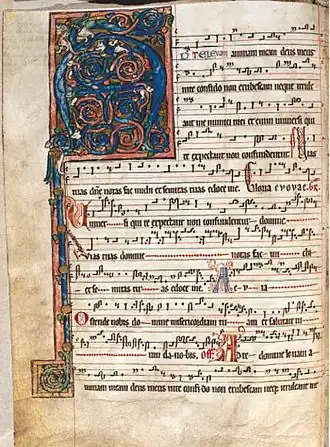 D te leuaui animam meam deus meus
in te confido non erubescam neqȝ irride
ant me inimici mei et enim uniuersi qui
te expectant non confundentur Uias
tuas dñe notas fac michi et semitas tuas edoce me. Gloria euouae. Gr.
Uniuersi qui te expectant non confundentur domine
Uias tuas domine notas fac mi chi
et se mitas tuas edoce me. A e u ia
Ostende nobis do mine misericordiam tu am et salutare tu
um da nobis. Off. Ad te domine leuaui a
nimam meam deus meus in te confido non erubescam neqȝ irrideant me